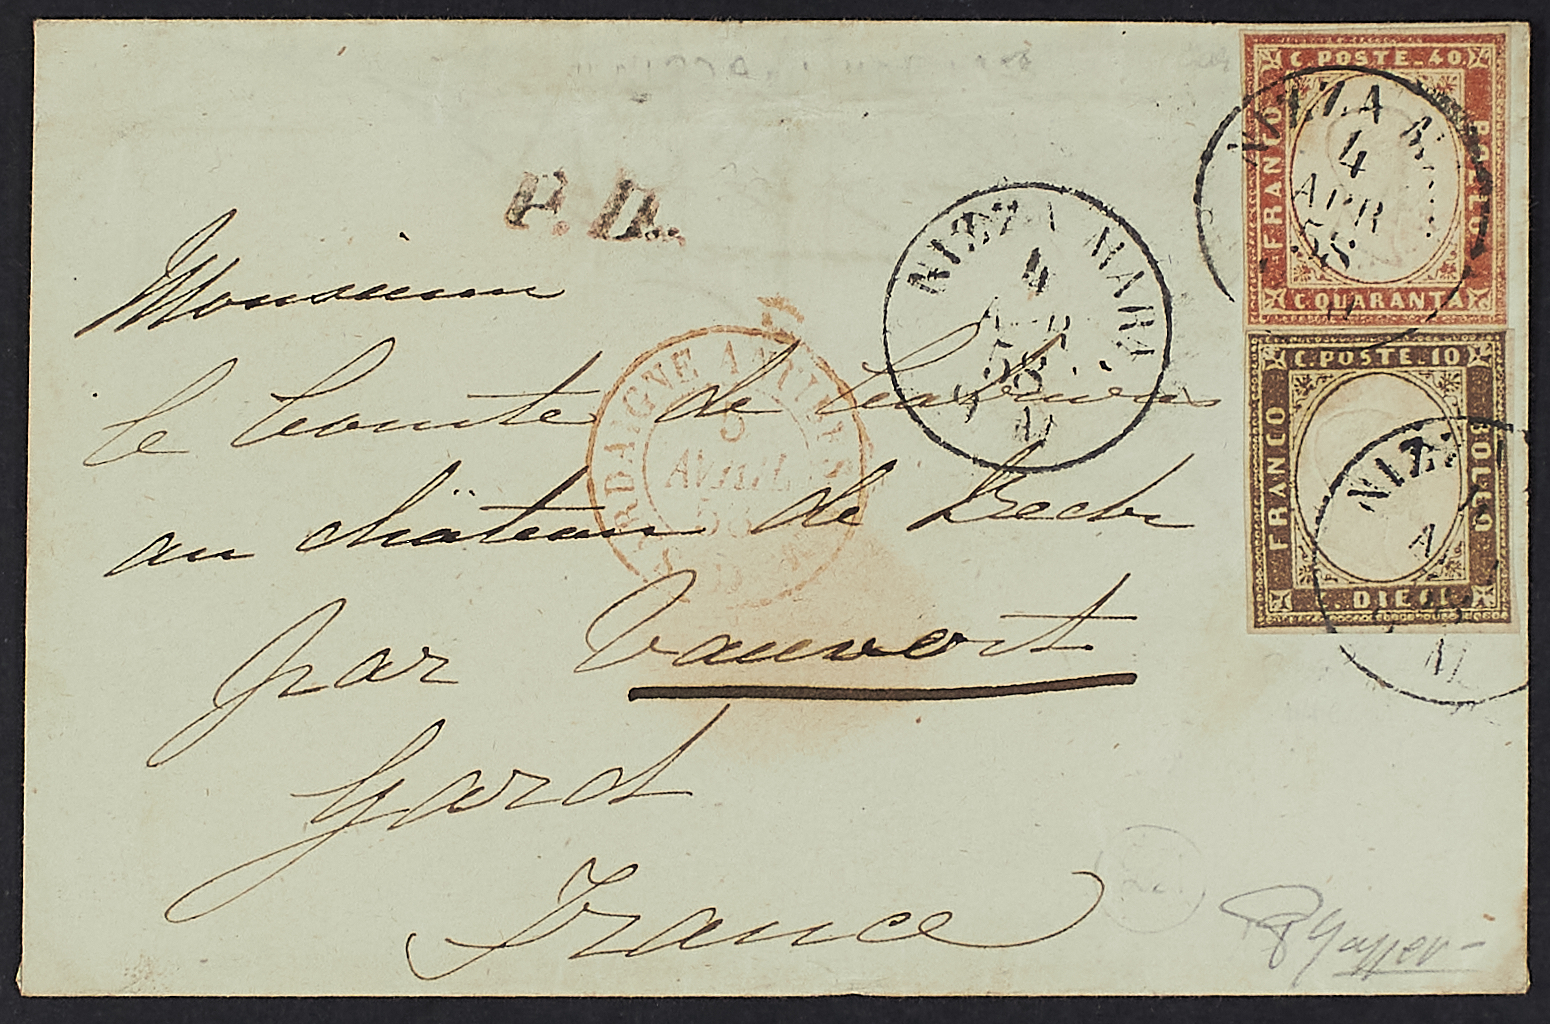 C. POSTE. 40.
FRANCO
BOLLO
C. QUARANTA
C. POSTE. 10
FRANCO
BOLLO
C. DIECI.
NIZZA M
4
APR
58
NIZZA MARI
4
APR
58
NIZZA
P. D.
SARDAIGNE ANTIBES
5
AVRIL
58
Monsieur
le Comte de
au château de
par Vauvert
Gard
France